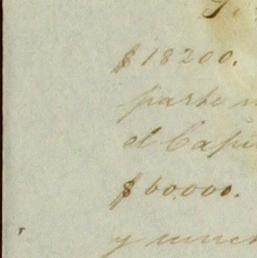 $18200.
parte
el Capi
$60000.
y